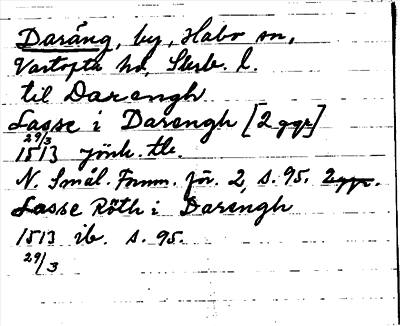 Daräng, by, Habo sn,
Vartofta hd, Skrb. l.
til Darengh
Lasse i Darengh [2 ggr]
29/3
1513 jönk. tb.
N. Smål. Fornm. för. 2, s. 95. 2 ggr.
Lasse Röth i Darengh
1513 ib. s. 95.
29/3